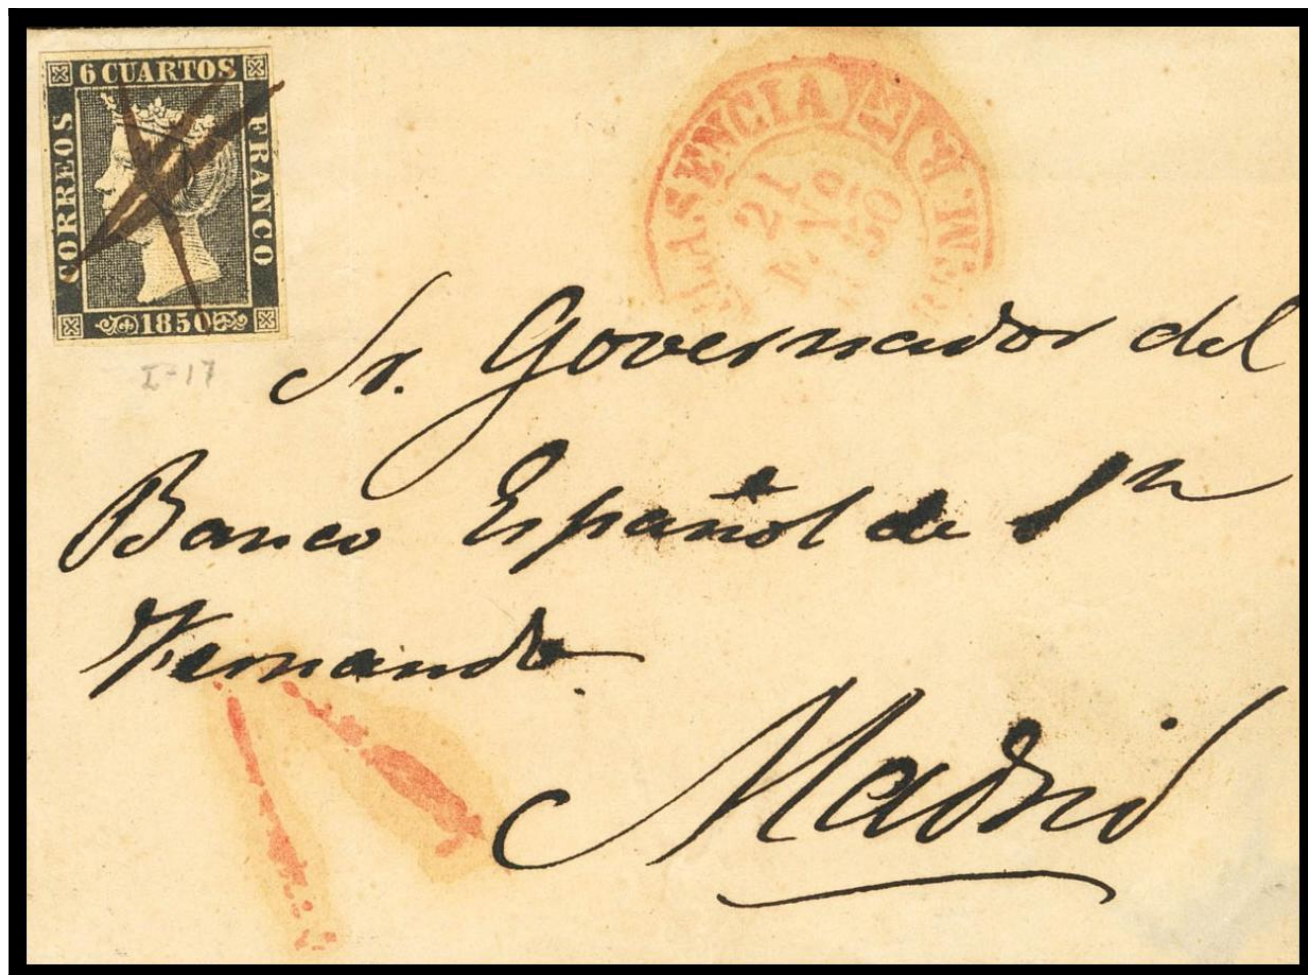 6 CUARTOS
CORREOS
FRANCO
1850
I-17
PLASENCIA
21
50
Sr. Governador del
Banco Español de Sn
Fernando.
Madrid